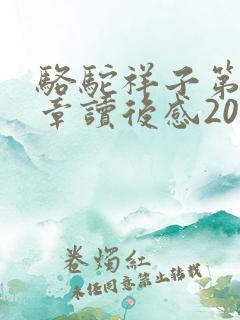 駱駝祥子第
章讀後感20
卷燭紅
未經同意禁止轉載